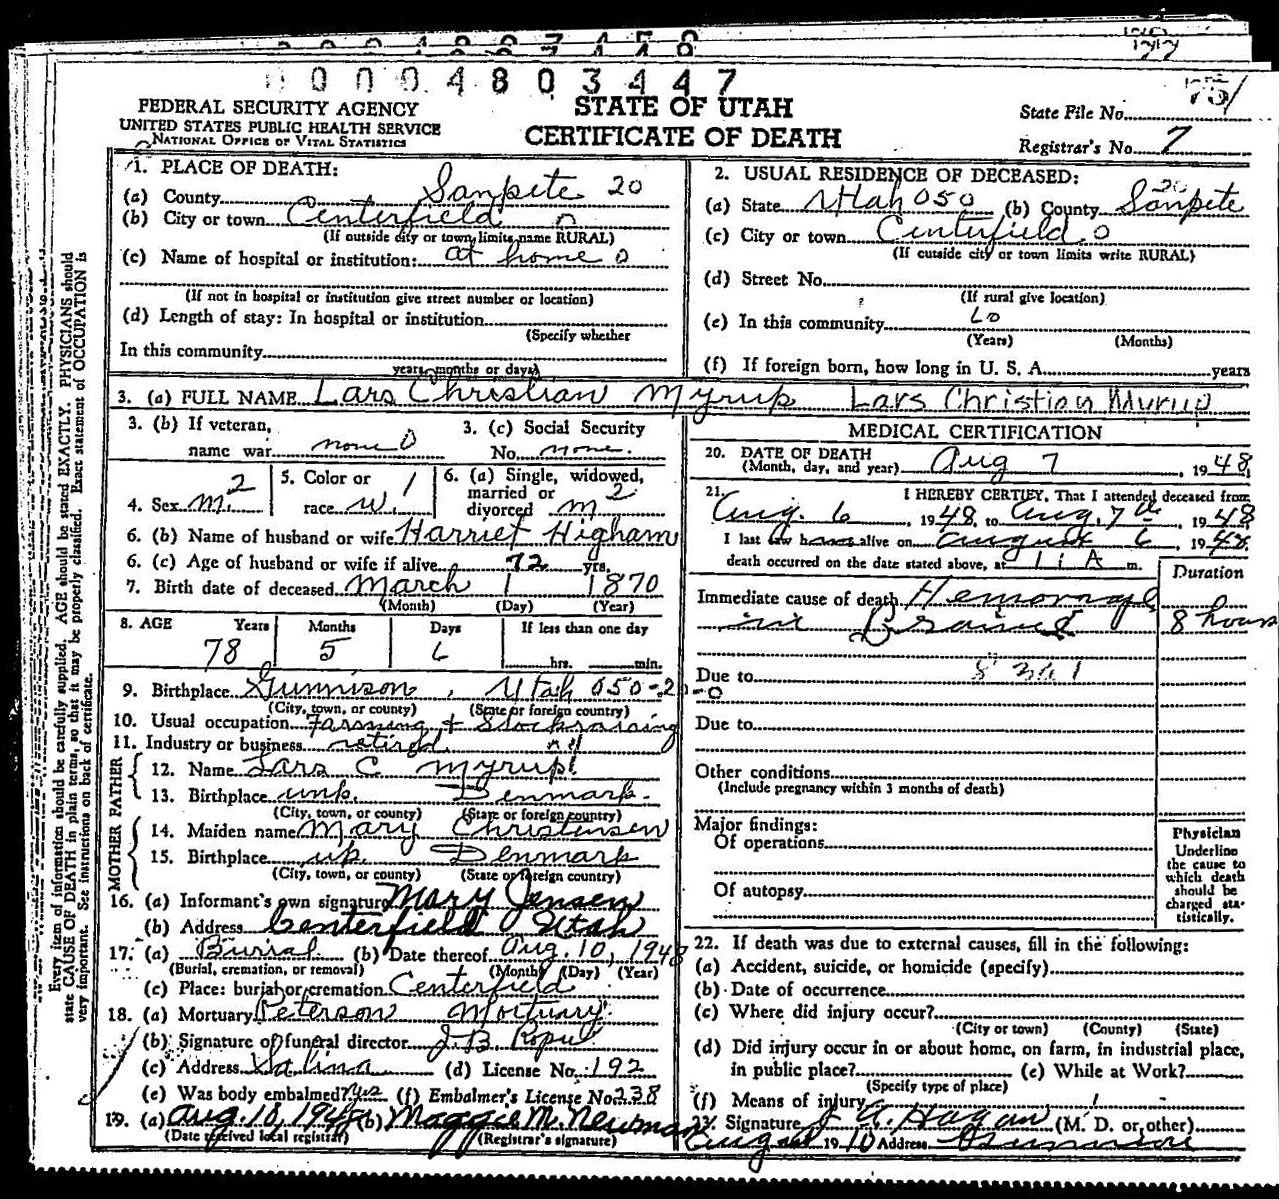 0 0 0 0 4 8 0 3 4 4 7
FEDERAL SECURITY AGENCY
UNITED STATES PUBLIC HEALTH SERVICE
NATIONAL OFFICE OF VITAL STATISTICS
STATE OF UTAH
CERTIFICATE OF DEATH
State File No. 75
Registrar's No. 7
Every item of information should be carefully supplied. AGE should be stated EXACTLY. PHYSICIANS should
state CAUSE OF DEATH in plain terms, so that it may be properly classified. Exact statement of OCCUPATION is
very important. See instructions on back of certificate.
1. PLACE OF DEATH:
(a) County Sanpete 20
(b) City or town Centerfield 0
(If outside city or town limits name RURAL)
(c) Name of hospital or institution: at home 0
(If not in hospital or institution give street number or location)
(d) Length of stay: In hospital or institution
(Specify whether
In this community
years, months or days)
2. USUAL RESIDENCE OF DECEASED:
(a) State Utah 050 (b) County Sanpete 20
(c) City or town Centerfield 0
(If outside city or town limits write RURAL)
(d) Street No.
(If rural give location)
(e) In this community
(Years) (Months)
(f) If foreign born, how long in U. S. A. years
3. (a) FULL NAME Lars Christian Myrup Lars Christian Myrup
3. (b) If veteran, name war none 0
3. (c) Social Security No. none
4. Sex M. 2
5. Color or race W. 1
6. (a) Single, widowed, married or divorced M 2
6. (b) Name of husband or wife Harriet Higham
6. (c) Age of husband or wife if alive 72 yrs.
7. Birth date of deceased March 1 1870
(Month) (Day) (Year)
8. AGE Years Months Days If less than one day
78 5 6 hrs. min.
9. Birthplace Gunnison, Utah 050-20-0
(City, town, or county) (State or foreign country)
10. Usual occupation Farming + Stockraising
11. Industry or business retired
FATHER
12. Name Lars C. Myrup
13. Birthplace unk. Denmark.
(City, town, or county) (State or foreign country)
MOTHER
14. Maiden name Mary Christensen
15. Birthplace Denmark
(City, town, or county) (State or foreign country)
16. (a) Informant's own signature Mary Jensen
(b) Address Centerfield Utah
17. (a) Burial (b) Date thereof Aug. 10, 1948
(Burial, cremation, or removal) (Month) (Day) (Year)
(c) Place: burial or cremation Centerfield
18. (a) Mortuary Peterson Mortuary
(b) Signature of funeral director J. B.
(c) Address Salina (d) License No. 192
(e) Was body embalmed? Yes (f) Embalmer's License No. 238
19. (a) Aug. 18, 1948 (b) Maggie M. Newman
(Date received local registrar) (Registrar's signature)
MEDICAL CERTIFICATION
20. DATE OF DEATH
(Month, day, and year) Aug 7, 1948
21. I HEREBY CERTIFY, That I attended deceased from
Aug. 6, 1948, to Aug. 7th, 1948
I last saw h alive on August 6, 1948.
death occurred on the date stated above, at 11 A m.
Duration
Immediate cause of death Hemorrage
in Brain 8 hours
Due to
Due to
Other conditions
(Include pregnancy within 3 months of death)
Major findings:
Of operations
Of autopsy
Physician
Underline
the cause to
which death
should be
charged sta-
tistically.
22. If death was due to external causes, fill in the following:
(a) Accident, suicide, or homicide (specify)
(b) Date of occurrence
(c) Where did injury occur?
(City or town) (County) (State)
(d) Did injury occur in or about home, on farm, in industrial place,
in public place? (e) While at Work?
(Specify type of place)
(f) Means of injury
23. Signature Hagan (M. D. or other)
August 19 10 Address Gunnison